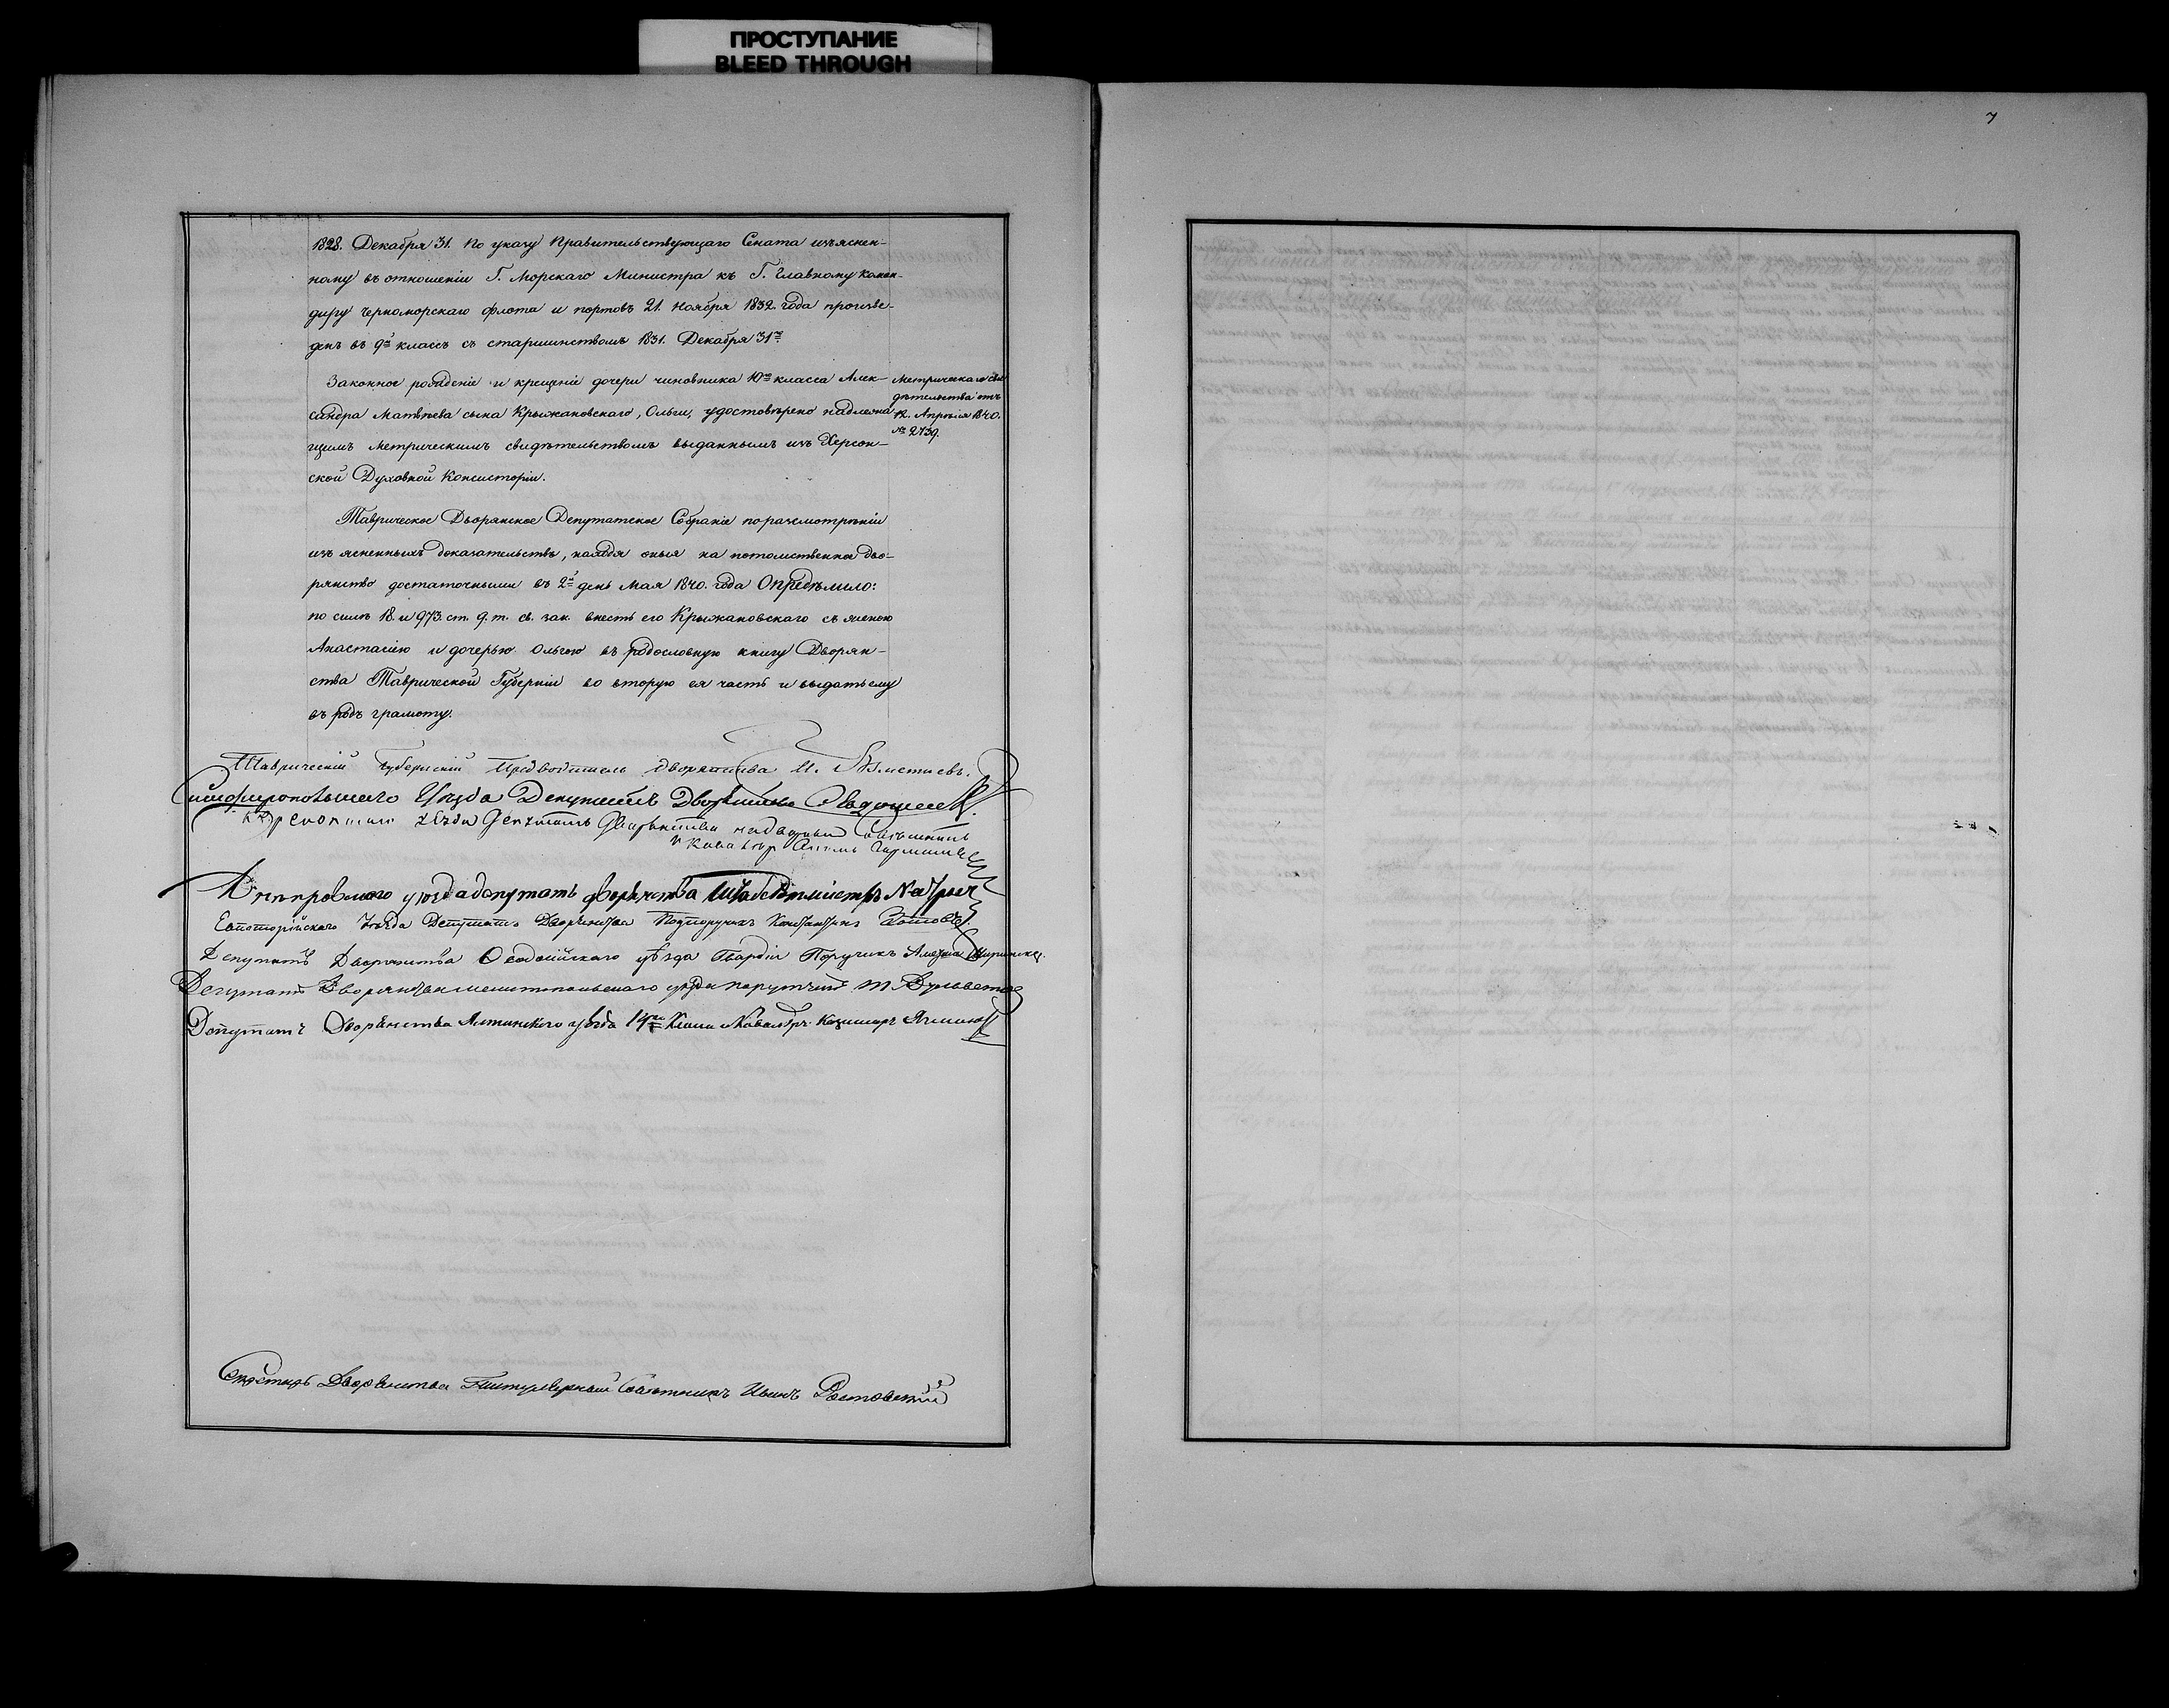 ПРОСТУПАНИЕ
BLEED THROUGH
7
1828. Декабря 31. По указу Правительствующаго Сената изъяснен-
ному въ отношеніи Г. Морскаго Министра къ Г. Главному Коман-
диру Черноморскаго флота и портовъ 21. Ноября 1832. года произве-
денъ въ 9й классъ съ старшинствомъ 1831. Декабря 31го.
Законное рожденіе и крещеніе дочери чиновника 10го класса Алек-
сандра Матвѣева сына Крыжановскаго, Ольги, удостовѣрено надлежа-
щимъ метрическимъ свидѣтельствомъ выданнымъ изъ Херсон-
ской Духовной Консисторіи.
Метрическаго сви
дѣтельства отъ
12. Апрѣля 1840.
№ 2739.
Таврическое Дворянское Депутатское Собраніе по разсмотрѣніи
изъясненныхъ доказательствъ, находя оныя на потомственное дво-
рянство достаточными въ 2й день Мая 1840. года Опредѣлило:
по силѣ 18. и 973. ст. 9. т. св. зак. внесть его Крыжановскаго съ женою
Анастасіею и дочерью Ольгою въ родословную книгу Дворян-
ства Таврической Губерніи во вторую ея часть и выдать ему
въ родъ грамоту.
Таврическій Губернскій Предводитель дворянства
Симферопольскаго Уѣзда Депутатъ Дворянства
уѣзда Депутатъ Дворянства надворный Совѣтникъ
и Кавалеръ
Днѣпровскаго уѣзда депутатъ дворянства Штабсъ-Ротмистръ
Евпаторійскаго Уѣзда Депутатъ Дворянства Подпоручикъ Константинъ
Депутатъ Дворянства Ѳеодосійскаго уѣзда Гвардіи Поручикъ
Депутатъ Дворянства Мелитопольскаго уѣзда порутчикъ
Депутатъ Дворянства Ялтинскаго уѣзда 14го Класа и Кавалеръ Казимиръ
Секретарь Дворянства Титулярный Совѣтникъ Иванъ Ростовскій